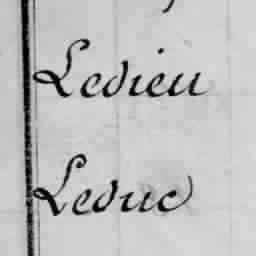 Ledieu
Leduc